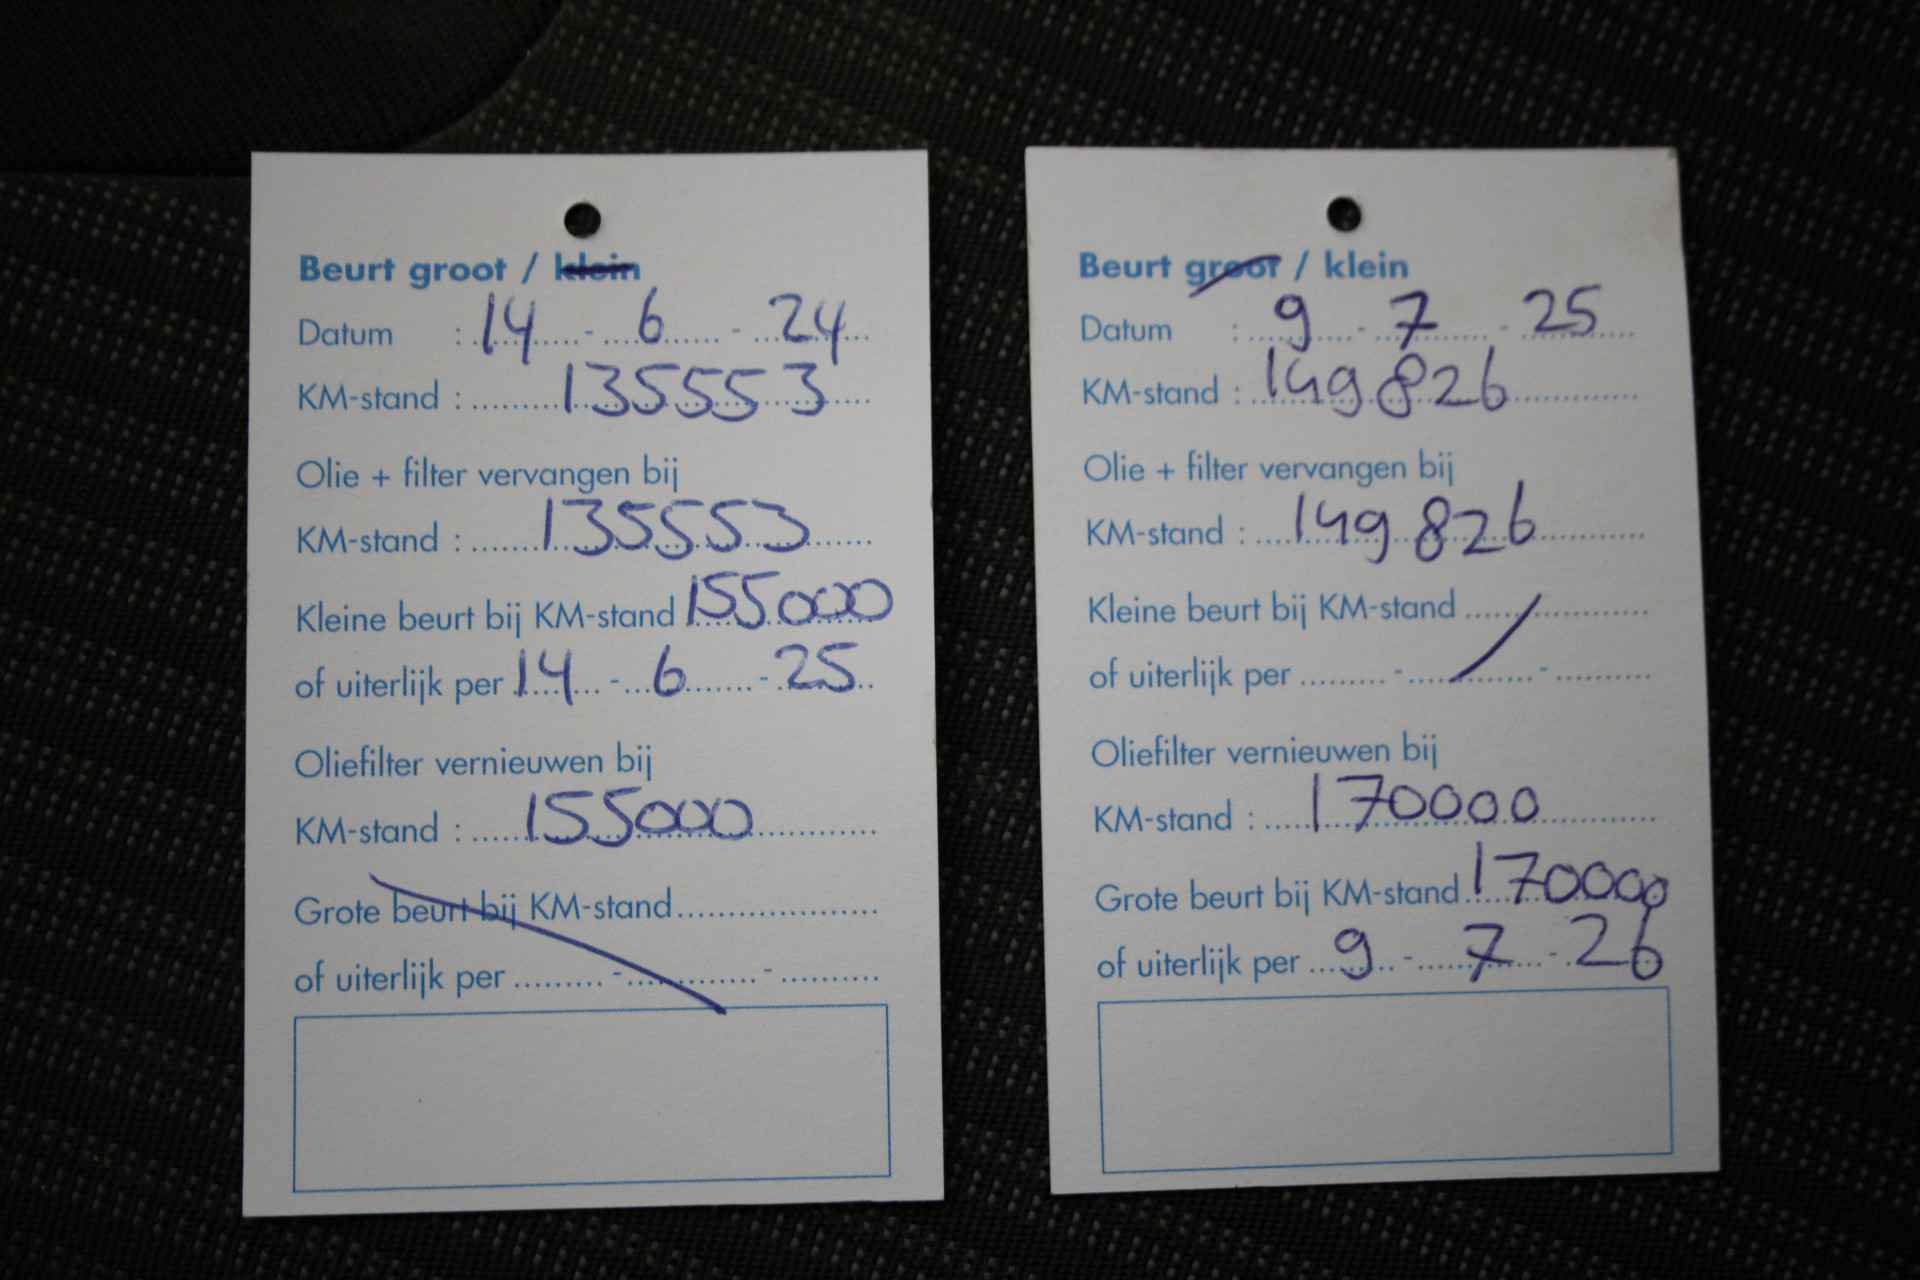 Beurt groot / klein
Datum : 14 - 6 - 24
KM-stand : 135553
Olie + filter vervangen bij
KM-stand : 135553
Kleine beurt bij KM-stand 155000
of uiterlijk per 14 - 6 - 25
Oliefilter vernieuwen bij
KM-stand : 155000
Grote beurt bij KM-stand
of uiterlijk per - -
Beurt groot / klein
Datum : 9 - 7 - 25
KM-stand : 149826
Olie + filter vervangen bij
KM-stand : 149826
Kleine beurt bij KM-stand
of uiterlijk per - -
Oliefilter vernieuwen bij
KM-stand : 170000
Grote beurt bij KM-stand 170000
of uiterlijk per 9 - 7 - 26